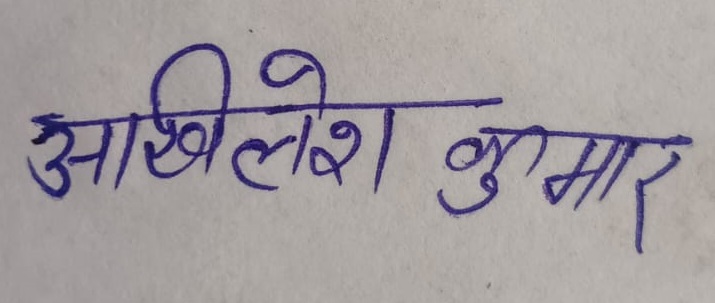 अखिलेश कुमार